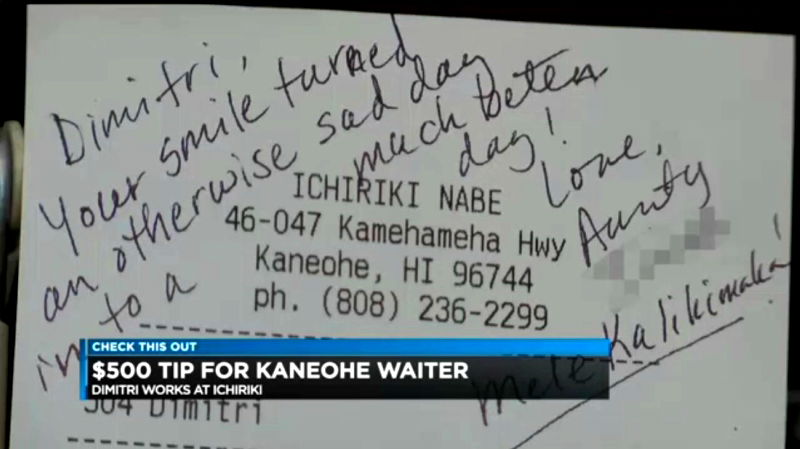 Dimitri,
Your smile turned
an otherwise sad day
into a much beter
day!
Love,
Aunty
Mele Kalikimaka!
ICHIRIKI NABE
46-047 Kamehameha Hwy
Kaneohe, HI 96744
ph. (808) 236-2299
CHECK THIS OUT
$500 TIP FOR KANEOHE WAITER
DIMITRI WORKS AT ICHIRIKI
504 Dimitri